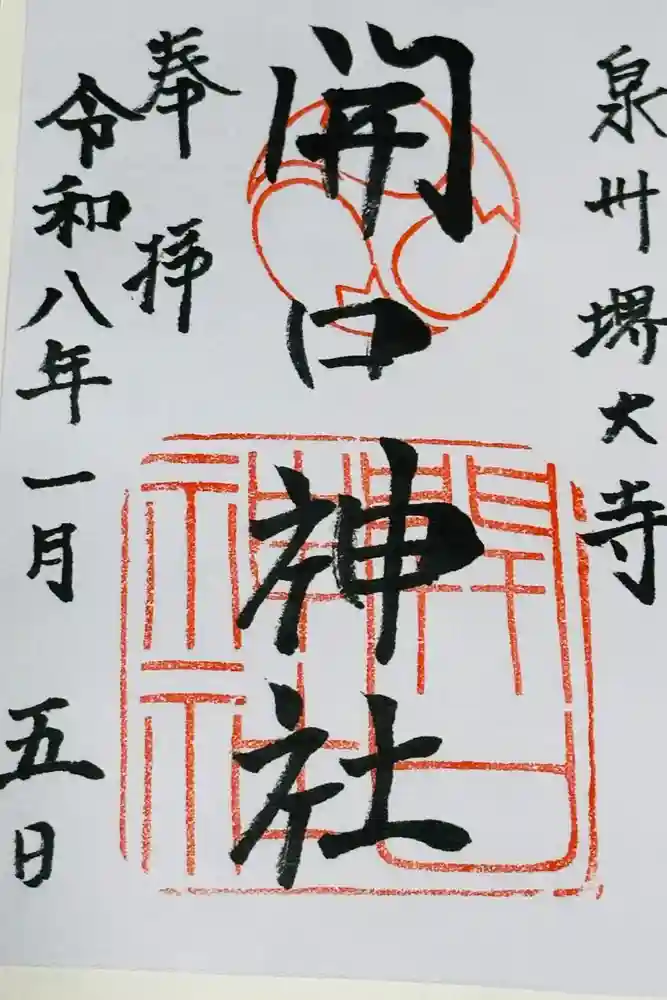 泉州堺大寺
開口神社
奉拝
令和八年一月五日
開口神社